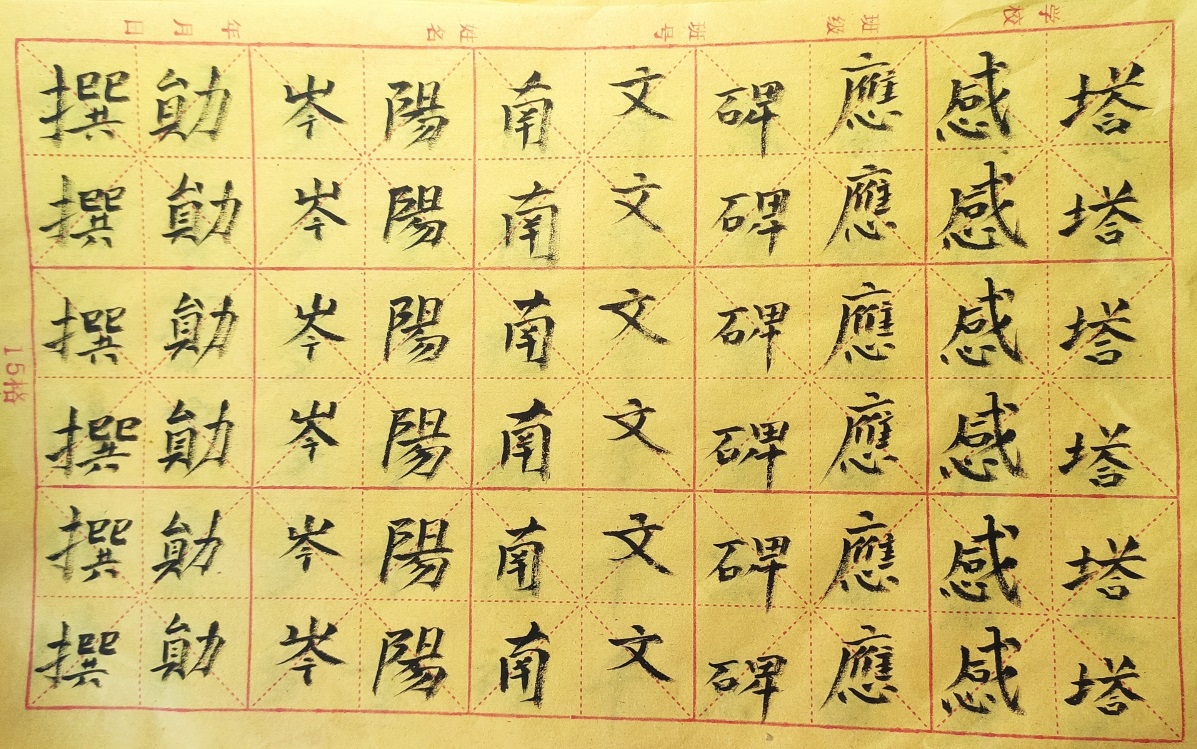 学校
班级
班号
姓名
年月日
塔塔塔塔塔塔
感感感感感感
應應應應應應
碑碑碑碑碑碑
文文文文文文
南南南南南南
陽陽陽陽陽陽
岑岑岑岑岑岑
勛勛勛勛勛勛
撰撰撰撰撰撰
15格